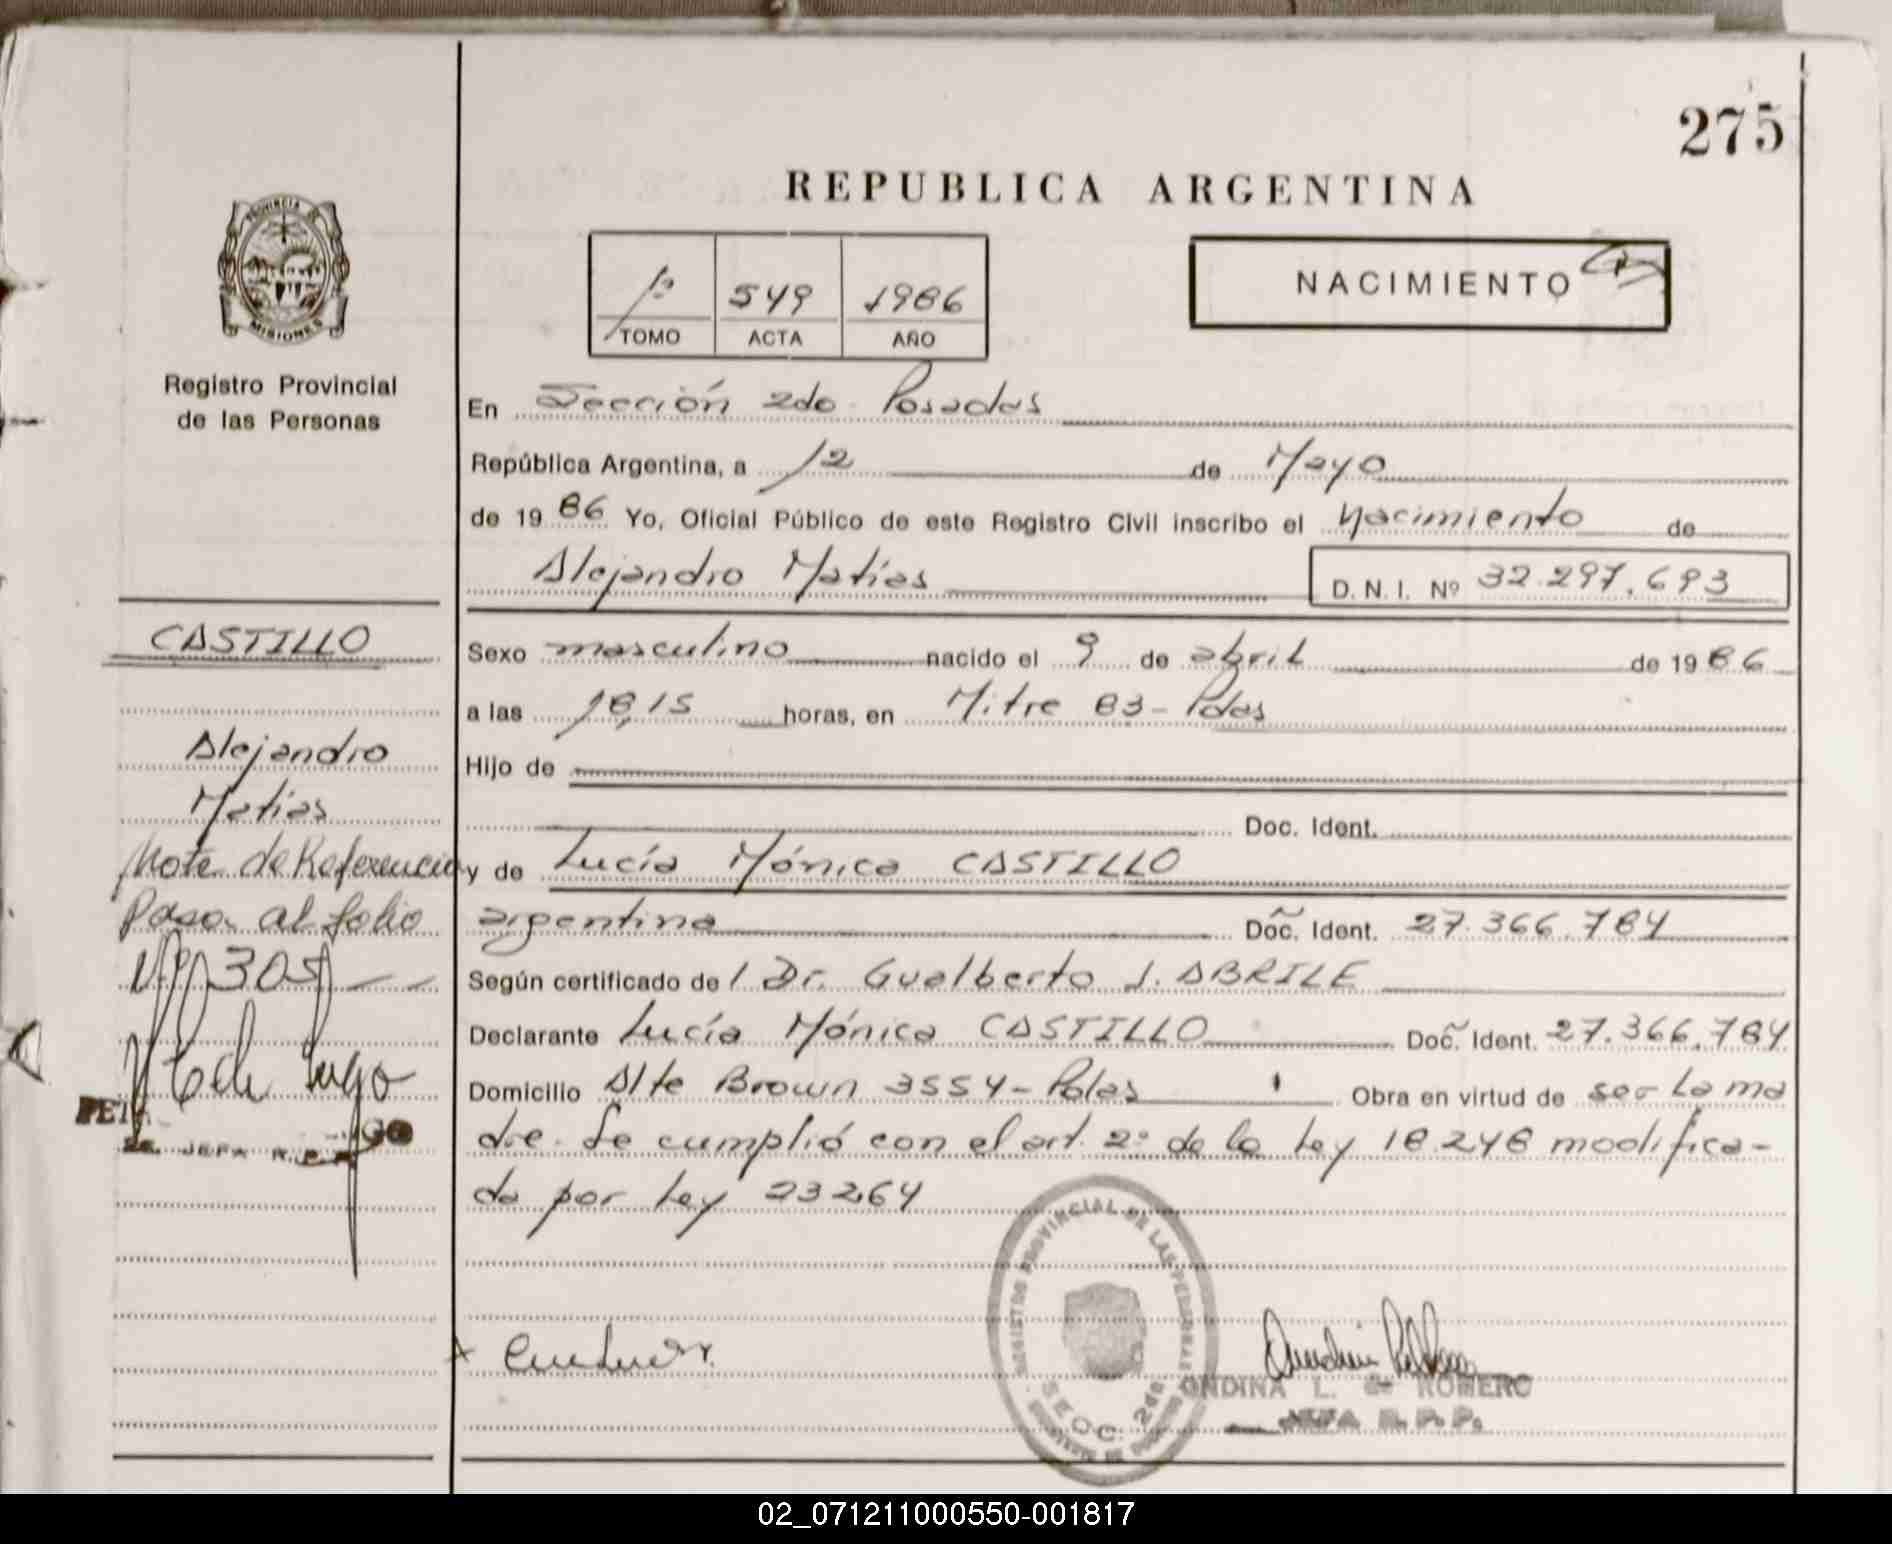 275
REPUBLICA ARGENTINA
PROVINCIA DE
MISIONES
Registro Provincial
de las Personas
1º 549 1986
TOMO ACTA AÑO
NACIMIENTO
En Sección 2da Posadas
República Argentina, a 12 de Mayo
de 1986 Yo, Oficial Público de este Registro Civil inscribo el Nacimiento de
Alejandro Matías D. N. I. Nº 32.297.693
CASTILLO
Alejandro
Matías
Nota de Referencia
Pasa al folio
Nº 305
Sexo masculino nacido el 9 de abril de 1986
a las 18,15 horas, en Mitre 83 - Pdas
Hijo de
Doc. Ident.
y de Lucía Mónica CASTILLO
argentina Doc. Ident. 27.366.784
Según certificado del Dr. Gualberto J. ABRILE
Declarante Lucía Mónica CASTILLO Doc. Ident. 27.366.784
Domicilio Alte Brown 3554 - Pdas Obra en virtud de ser la ma
dre. Se cumplió con el art. 2º de la Ley 18.248 modifica-
da por Ley 23264
JEFA R.P.P.
REGISTRO PROVINCIAL DE LAS PERSONAS
SECC. 2da
ONDINA L. de ROMERO
JEFA R.P.P.
02_071211000550-001817